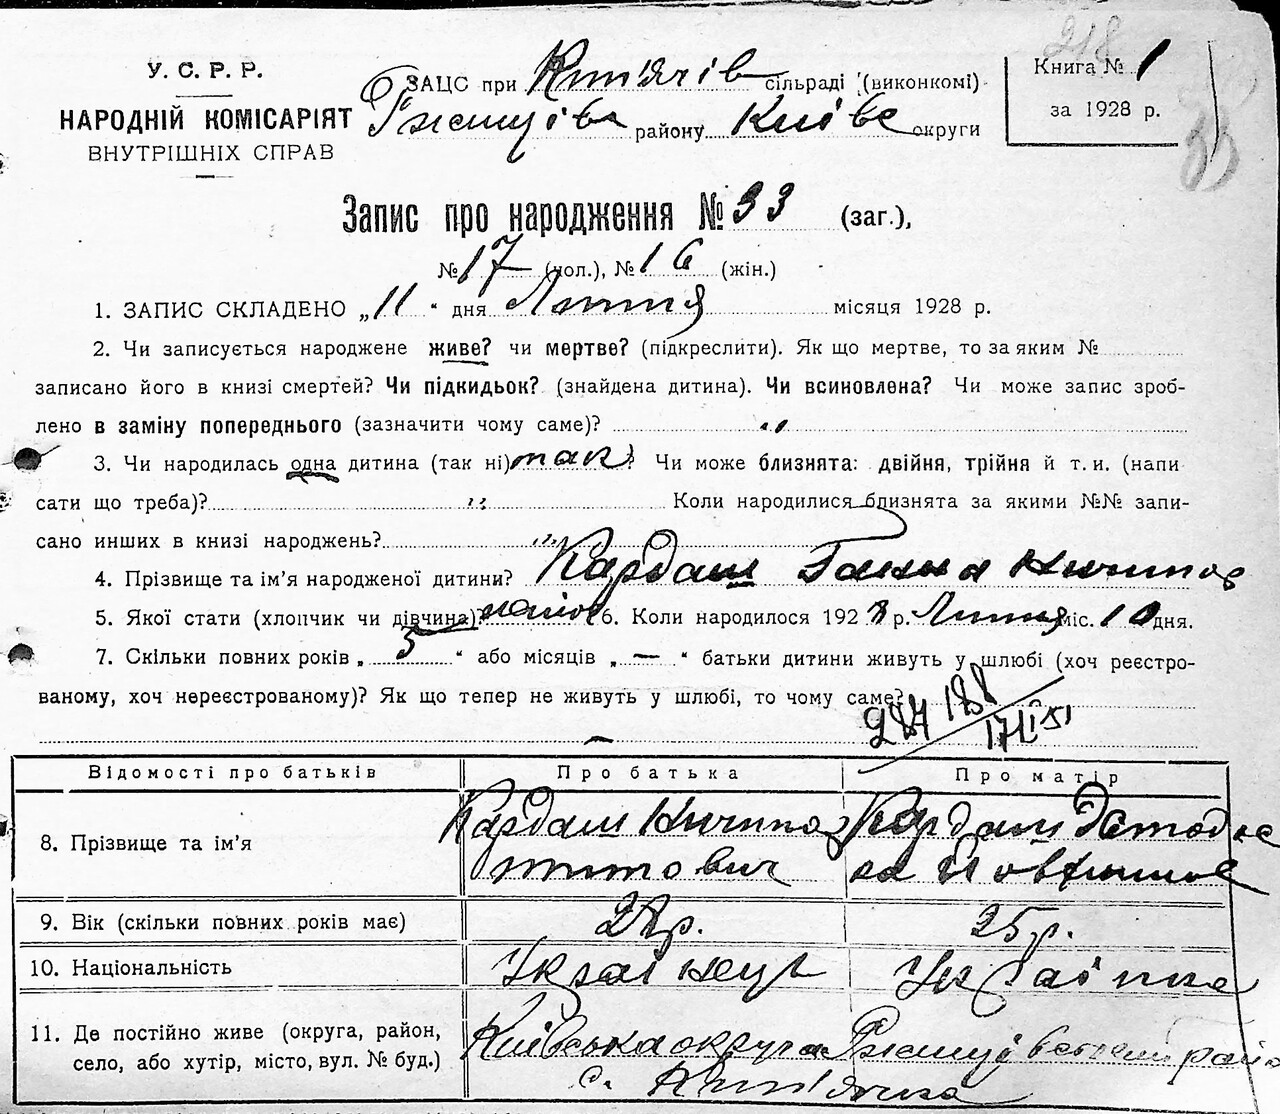 218
У. С. Р. Р.
НАРОДНІЙ КОМІСАРІЯТ
ВНУТРІШНІХ СПРАВ
ЗАЦС при Кип'ячів сільраді (виконкомі)
Ржищів району Київс округи
Книга № 1
за 1928 р.
33
Запис про народження № 33 (заг.),
№ 17 (чол.), № 16 (жін.)
1. ЗАПИС СКЛАДЕНО „11“ дня Липня місяця 1928 р.
2. Чи записується народжене живе? чи мертве? (підкреслити). Як що мертве, то за яким №
записано його в книзі смертей? Чи підкидьок? (знайдена дитина). Чи всиновлена? Чи може запис зроб-
лено в заміну попереднього (зазначити чому саме)? „
3. Чи народилась одна дитина (так ні) так? Чи може близнята: двійня, трійня й т. и. (напи
сати що треба)? „ Коли народилися близнята за якими №№ запи-
сано инших в книзі народжень? „
4. Прізвище та ім'я народженої дитини? Кардаш Ганна Ничипор
5. Якої стати (хлопчик чи дівчина)? жіноч 6. Коли народилося 1928 р. Липня міс. 10 дня.
7. Скільки повних років „ 5 “ або місяців „ — “ батьки дитини живуть у шлюбі (хоч реєстро-
ваному, хоч нереєстрованому)? Як що тепер не живуть у шлюбі, то чому саме?
188
171 151
Відомості про батьків Про батька Про матір
8. Прізвище та ім'я
Кардаш Ничипор
Титович
Кардаш
9. Вік (скільки повних років має) 28р. 25 р.
10. Національність Українец Українка
11. Де постійно живе (округа, район,
село, або хутір, місто, вул. № буд.)
Київська округа Ржищівський район
с. Кип'ячка